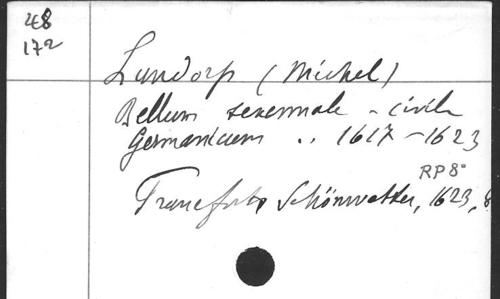 4E8
172
Lundorp (Michel)
Bellum sexennale - civile
Germanicum .. 1617-1623
RP 8°
Francfurto Schönwetter, 1623, 8